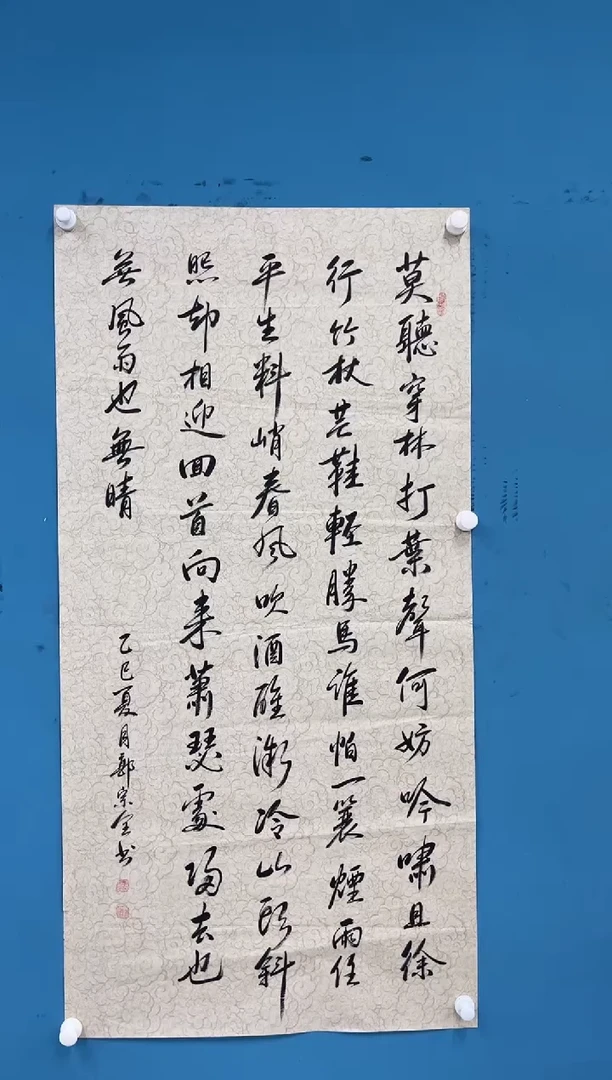 莫聽穿林打葉聲何妨吟嘯且徐
行竹杖芒鞋輕勝馬誰怕一蓑煙雨任
平生料峭春風吹酒醒微冷山頭斜
照却相迎回首向来蕭瑟處歸去也
無風雨也無晴
乙巳夏月郭宗全书